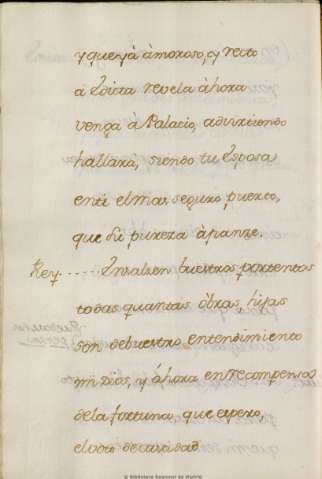 y que yá àmoroso, y recto
à Edicta revela àhora
venga à Palacio, advirtiendo
hallará, siendo tu Esposa
en ti el mas seguro puerto,
que di pureza àpanze.
Rey. .... Ensalzen buestros portentos
todas quantas òbras, hijas
son de buestro entendimiento
mi Dios, y àhora en recompensa
de la fortuna que espero,
el voto de castidad
© Biblioteca Regional de Madrid